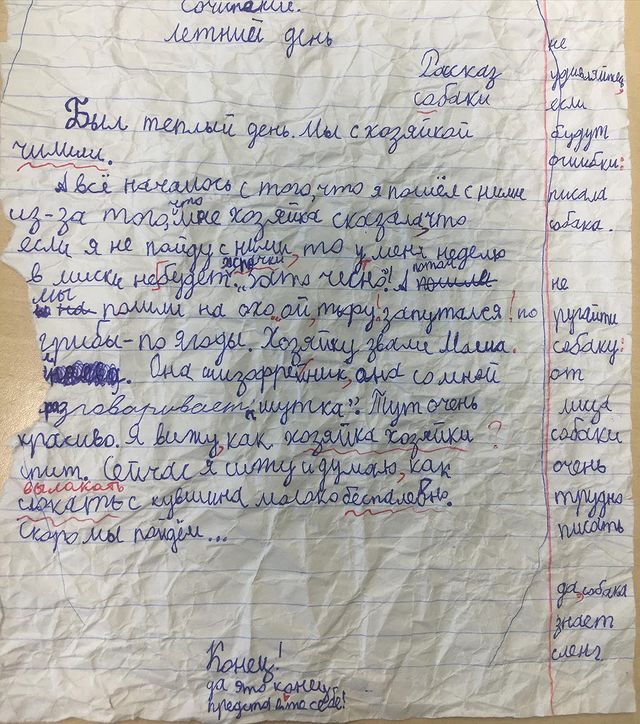 Сочинение.
Летний день
Рассказ
собаки
Был теплый день. Мы с хозяйкой
чилили.
А всё началось с того, что я пошёл с ними
из-за того, что мне хозяйка сказала, что
если я не пойду с ними, то у меня неделю
в миски не будет жрачки. "Зато чесно"! А потом
мы пошли на охо, ой, тьфу! запутался! по
грибы - по ягоды. Хозяйку звали Маша.
Она шизофреник, она со мной
разговаривает "шутка". Тут очень
красиво. Я вижу, как хозяйка хозяйки ?
спит. Сейчас я сижу и думаю, как
вылакать
слокать с кувшина молоко беспалевно.
Скоро мы пойдём...
Конец!
да это конец
представь то себе!
не
удивляйтец,
если
будут
ошибки:
писала
собака.
не
ругайти
собаку:
от
лица
собаки
очень
трудно
писать
да, собака
знает
сленг